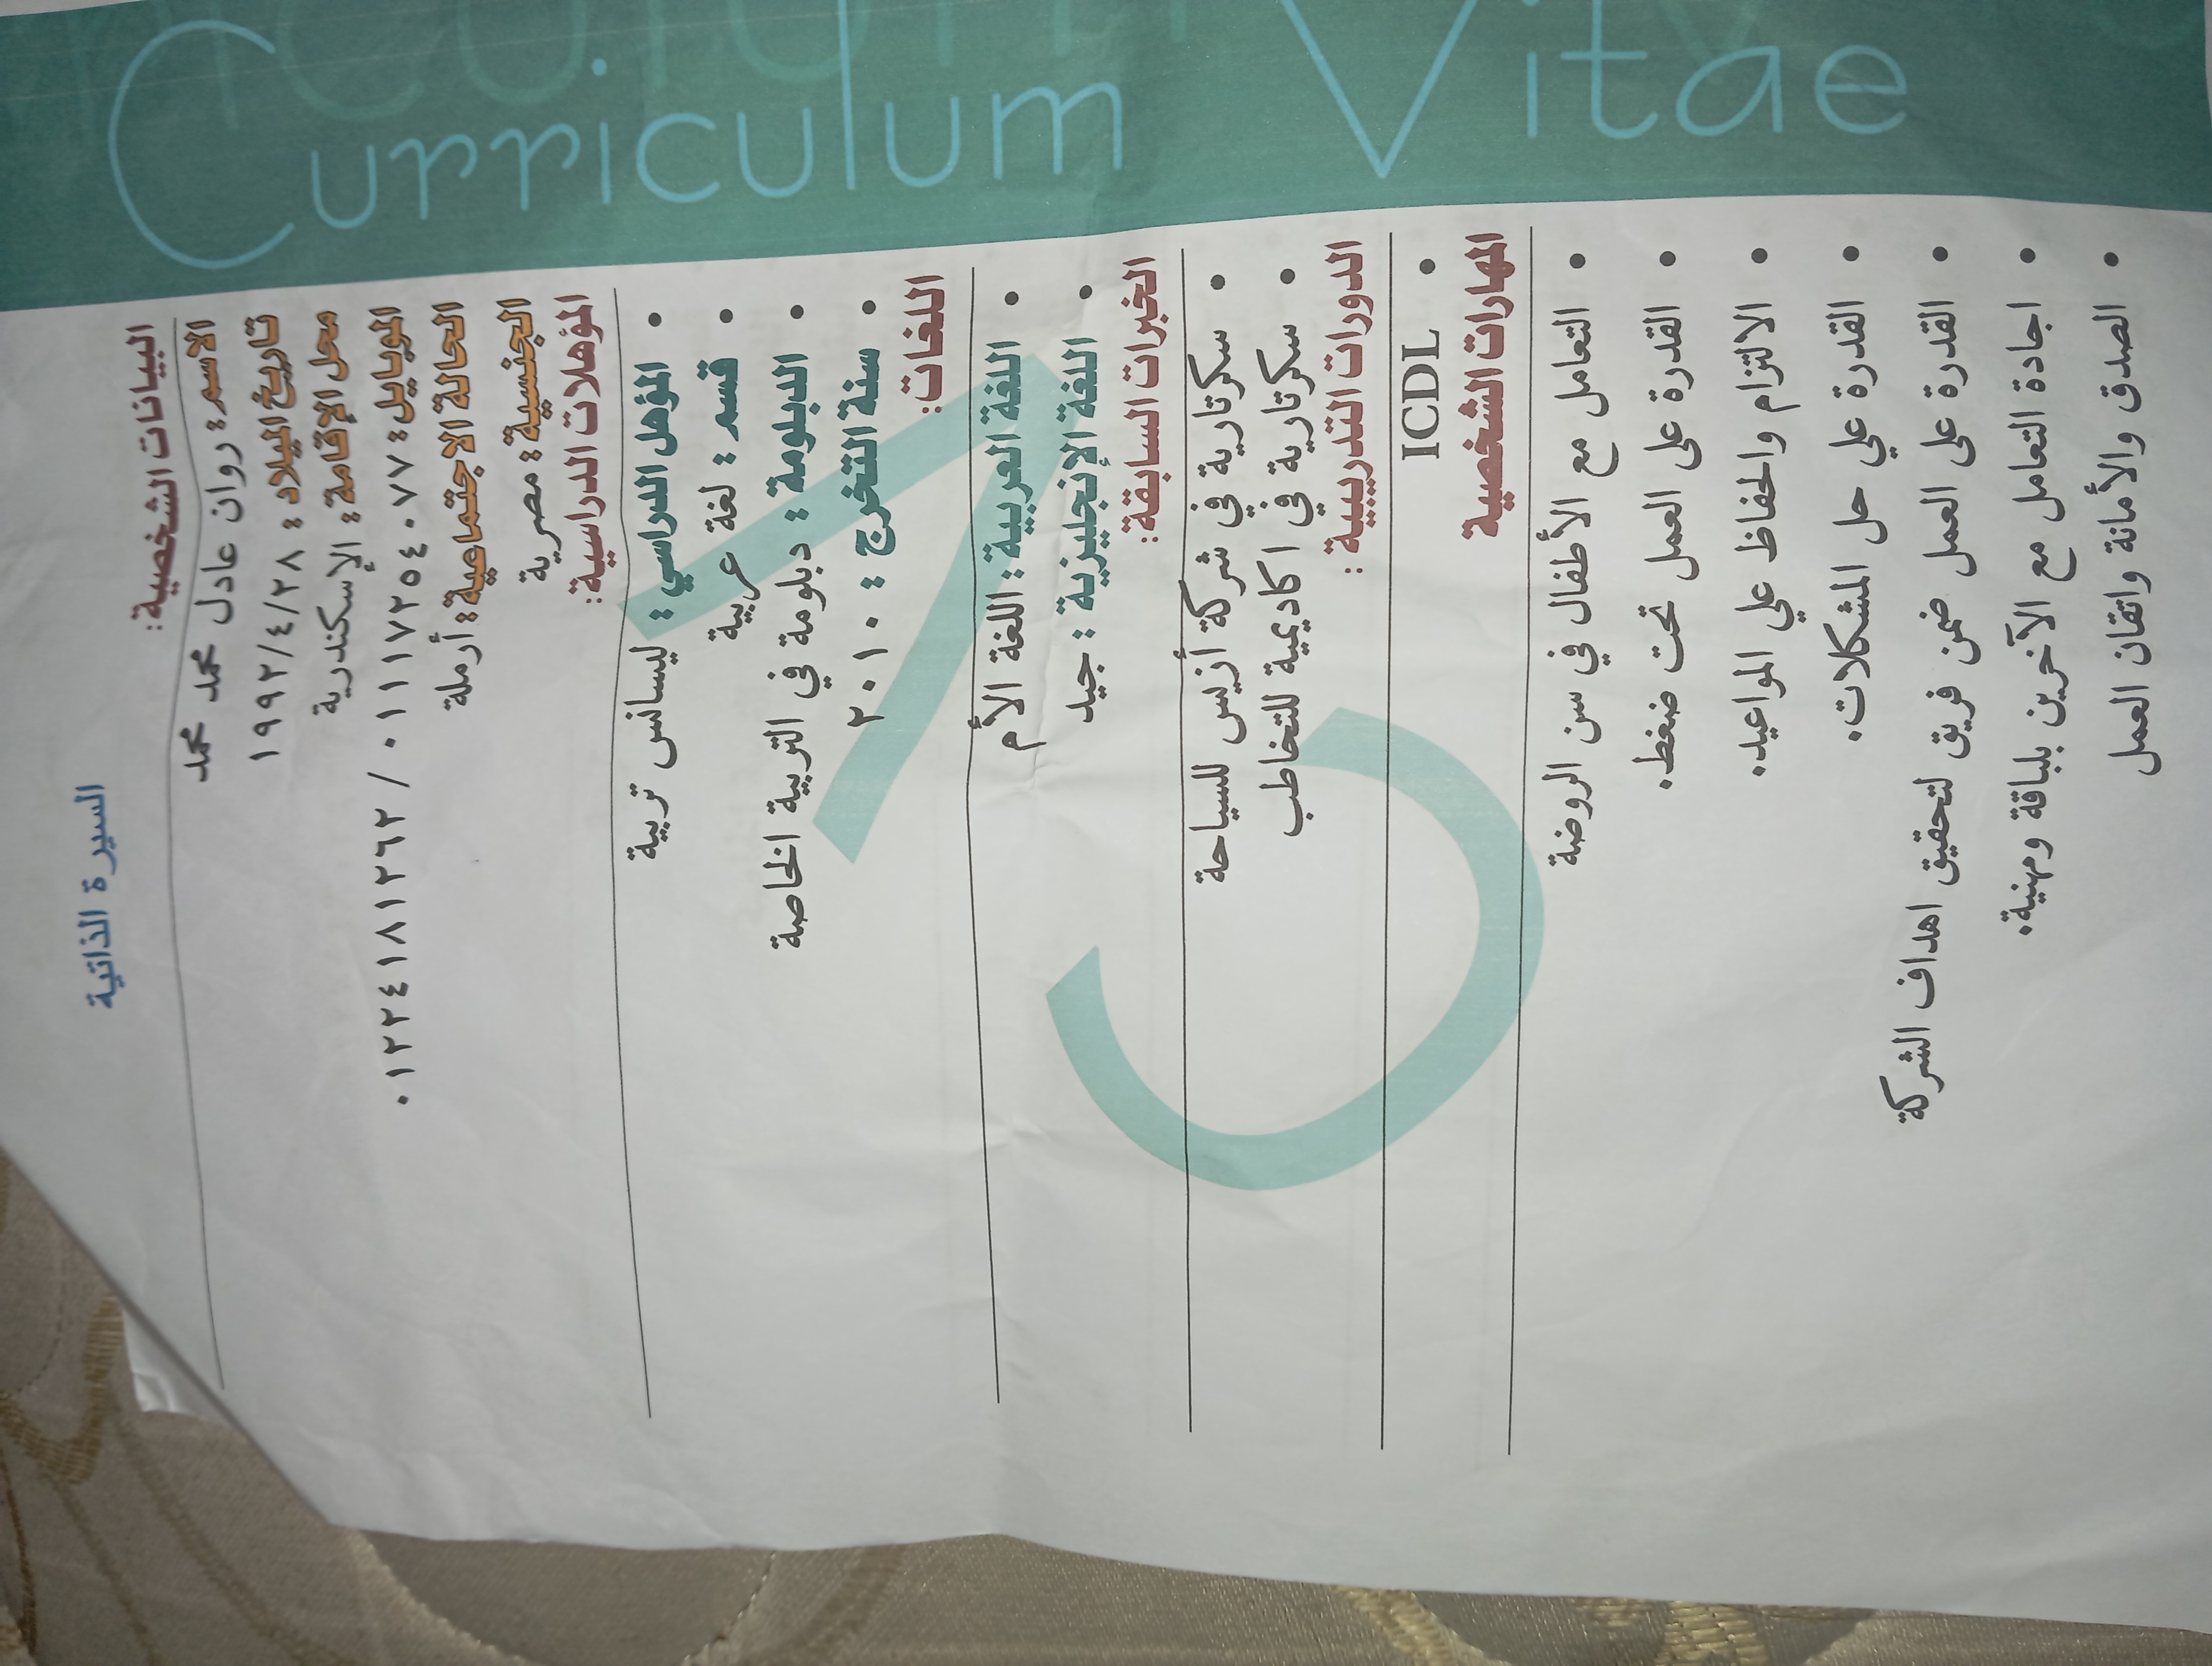 Curriculum Vitae
السيرة الذاتية
البيانات الشخصية:
الاسم: روان عادل محمد محمد
تاريخ الميلاد: ١٩٩٢/٤/٢٨
محل الإقامة: الإسكندرية
الموبايل: ٠١١١٧٢٥٤٠٧٧ / ٠١٢٢٤١٨١٢٦٢
الحالة الاجتماعية: أرملة
الجنسية: مصرية
المؤهلات الدراسية:
• المؤهل الدراسي: ليسانس تربية
• قسم: لغة عربية
• الدبلومة: دبلومة في التربية الخاصة
• سنة التخرج: ٢٠١٠
اللغات:
• اللغة العربية: اللغة الأم
• اللغة الإنجليزية: جيد
الخبرات السابقة:
• سكرتارية في شركة أزيس للسياحة
• سكرتارية في اكاديمية للتخاطب
الدورات التدريبية:
• ICDL
المهارات الشخصية
• التعامل مع الأطفال في سن الروضة
• القدرة على العمل تحت ضغط.
• الالتزام والحفاظ علي المواعيد.
• القدرة علي حل المشكلات.
• القدرة على العمل ضمن فريق لتحقيق اهداف الشركة
• اجادة التعامل مع الآخرين بلباقة ومهنية.
• الصدق والأمانة واتقان العمل